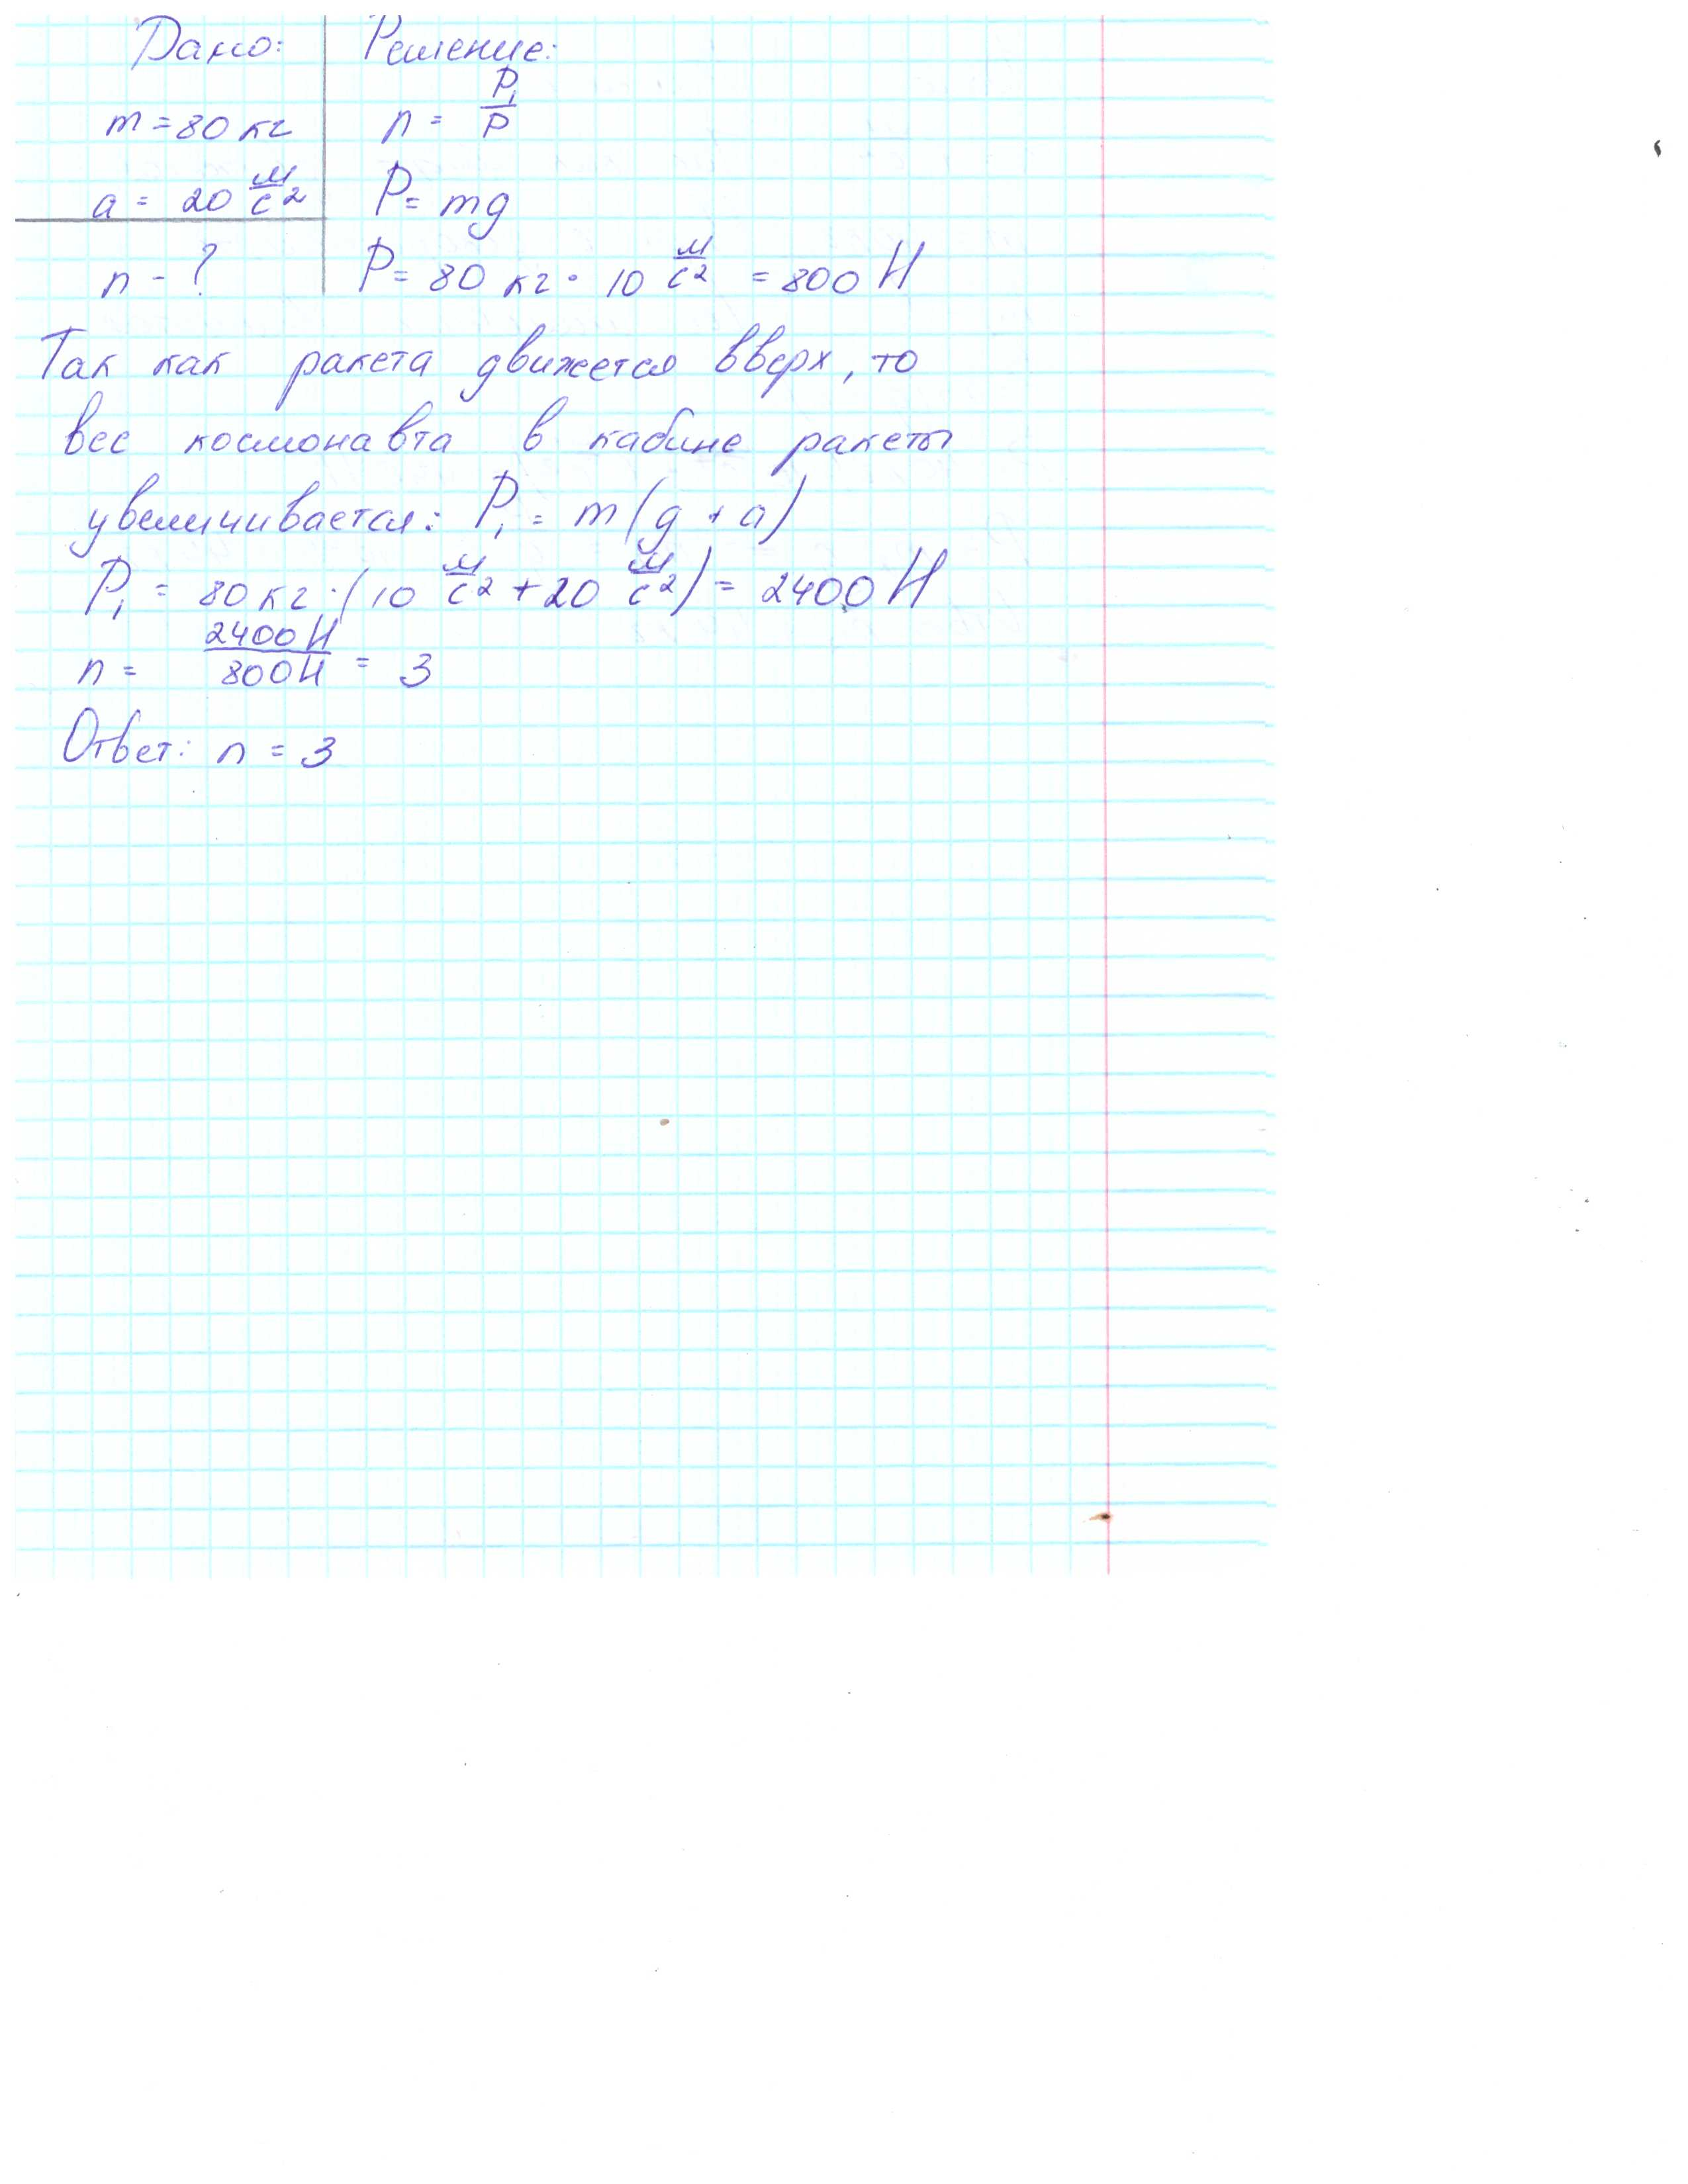 Дано:
Решение:
m = 80 кг
n = P₁/P
a = 20 м/с²
P = mg
n - ?
P = 80 кг · 10 м/с² = 800 Н
Так как ракета движется вверх, то
вес космонавта в кабине ракеты
увеличивается: P₁ = m(g + a)
P₁ = 80 кг · (10 м/с² + 20 м/с²) = 2400 Н
n = 2400 Н/800 Н = 3
Ответ: n = 3